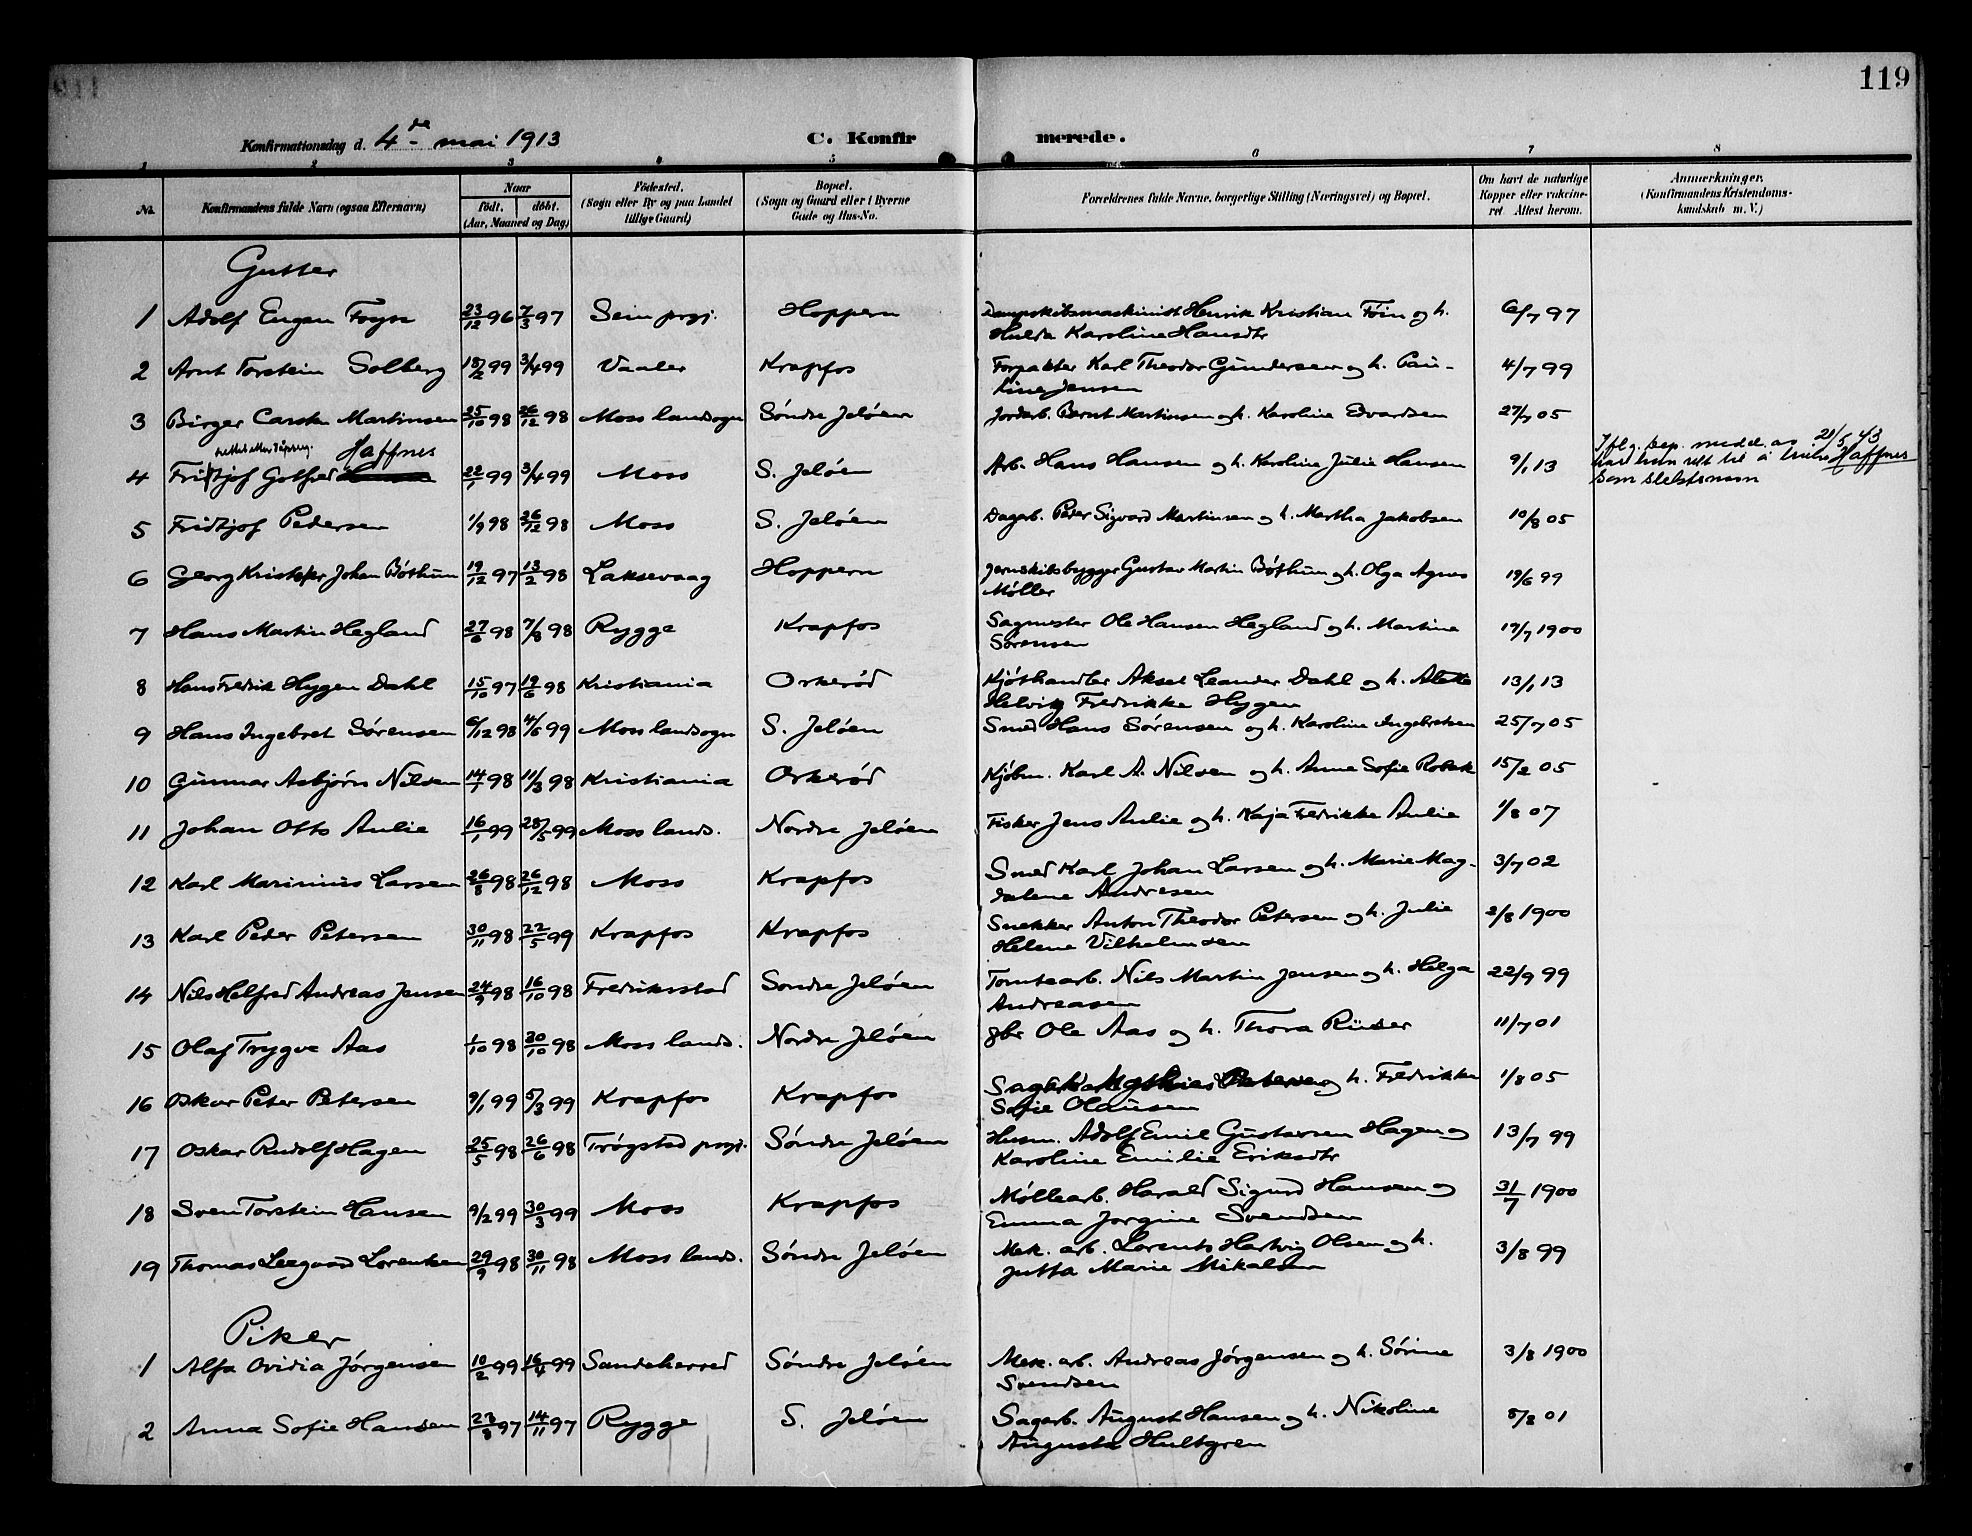 119
Konfirmationsdag d. 4de mai 1913
C. Konfirmerede.
1 2 3 4 5 6 7 8
No. Konfirmandens fulde Navn (ogsaa Efternavn) Naar født. døbt. (Aar, Maaned og Dag) Fødested. (Sogn eller By og paa Landet tillige Gaard) Bopæl. (Sogn og Gaard eller i Byerne Gade og Hus-No.) Forældrenes fulde Navne, borgerlige Stilling (Næringsvei) og Bopæl. Om havt de naturlige Kopper eller vaccineret Attest herom. Anmærkninger. (Konfirmandens Kristendomskundskab m.V.)
Gutter
1 Adolf Eugen Foyn 23/12 96 7/3 97 Sem prgj. Hoppern Dampskibsmaskinist Henrik Kristian Føin og h. 6/7 97
Hulda Karoline Hansdtr
2 Arnt Torstein Solberg 18/2 99 3/4 99 Vaaler Krapfos Forpakter Karl Theodor Gundersen og h. Pau- 4/7 99
line Jensen
3 Birger Carsten Martinsen 25/10 98 26/12 98 Moss landsogn Søndre Jeløen Jordarb. Bernt Martinsen og h. Karoline Edvardsen 27/7 05
rettet etter Haffnes
4 Fridtjof Gotfred 22/1 99 3/4 99 Moss S. Jeløen Arb. Hans Hansen og h. Karoline Julie Hansen 9/1 13 Iflg. medd. av 21/5 43
har han rett til å Haffnes
som slektsnavn
5 Fridtjof Pedersen 1/9 98 26/12 98 Moss S. Jeløen Dagarb. Peder Sigvard Martinsen og h. Martha Jakobsen 10/8 05
6 Georg Kristofer Johan Bøthun 19/12 97 13/2 98 Laksevaag Hoppern Jernskibsbygger Gustav Martin Bøthun og h. Olga Agnes 19/6 99
Møller
7 Hans Martin Hegland 27/6 98 7/8 98 Rygge Krapfos Sagmester Ole Hansen Hegland og h. Martine 17/7 1900
Sørensen
8 Hans Fredrik Hygen Dahl 15/10 97 19/6 98 Kristiania Orkerød Kjøthandler Aksel Leander Dahl og h. Alette 13/1 13
Helvig Fredrikke Hygen
9 Hans Ingebret Sørensen 6/12 98 4/6 99 Moss landsogn S. Jeløen Smed Hans Sørensen og h. Karoline Ingebretsen 25/7 05
10 Gunnar Asbjørn Nilsen 14/1 98 11/3 98 Kristiania Orkerød Kjøbm. Karl A. Nilsen og h. Anna Sofie Robak 15/2 05
11 Johan Otto Aulie 16/1 99 28/5 99 Moss lands. Nordre Jeløen Fisker Jens Aulie og h. Kaja Fredrikke Aulie 1/8 07
12 Karl Marinius Larsen 26/8 98 26/12 98 Moss Krapfos Smed Karl Johan Larsen og h. Marie Mag- 3/7 02
dalene Andresen
13 Karl Peder Petersen 30/11 98 22/5 99 Krapfos Krapfos Snekker Anton Theodor Petersen og h. Julie 2/8 1900
Helene Vilhelmsen
14 Nils Helfred Andreas Jensen 24/9 98 16/10 98 Fredriksstad Søndre Jeløen Tomtearb. Nils Martin Jensen og h. Helga 22/9 99
Andreasen
15 Olaf Trygve Aas 1/10 98 30/10 98 Moss lands. Nordre Jeløen gbr Ole Aas og h. Thora Rüder 11/7 01
16 Oskar Peter Petersen 9/1 99 5/3 99 Krapfos Krapfos Sagarb. Karl Mathias Petersen og h. Fredrikke 1/8 05
Sofie Olausen
17 Oskar Rudolf Hagen 25/5 98 26/6 98 Trøgstad prgj. Søndre Jeløen Husm. Adolf Emil Gustavsen Hagen og 13/7 99
Karoline Emilie Eriksdtr
18 Sven Torstein Hansen 9/2 99 30/3 99 Moss Krapfos Møllearb. Harald Sigurd Hansen og 31/7 1900
Emma Jørgine Svendsen
19 Thomas Leegaard Lorentsen 29/9 98 30/11 98 Moss lands. Søndre Jeløen Mek. arb. Lorents Hartvig Olsen og h. 3/8 99
Jutta Marie Mikalsen
Piker
1 Alfa Ovidia Jørgensen 10/2 99 16/4 99 Sandeherred Søndre Jeløen Mek. arb. Andreas Jørgensen og h. Sørine 3/8 1900
Svendsen
2 Anna Sofie Hansen 23/8 97 14/11 97 Rygge S. Jeløen Sagarb. August Hansen og h. Nikoline 5/8 01
Augusta Hultgren